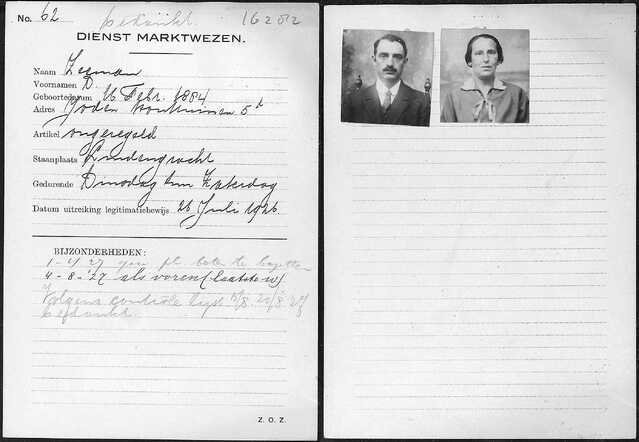 No. 62 bedankt 16202
DIENST MARKTWEZEN.
Naam Zegman
Voornamen D.
Geboortedatum 16 Febr. 1884
Adres Joden Houttuinen 5
Artikel ongeregeld
Staanplaats Lindengracht
Gedurende Dinsdag t/m Zaterdag
Datum uitreiking legitimatiebewijs 26 Juli 1926
BIJZONDERHEDEN:
1- '27 pl. te bezetten
4-8-'27 als voren (laatste w)
Volgens controle lijst 15/8 20/8 27
bedankt
Z. O. Z.